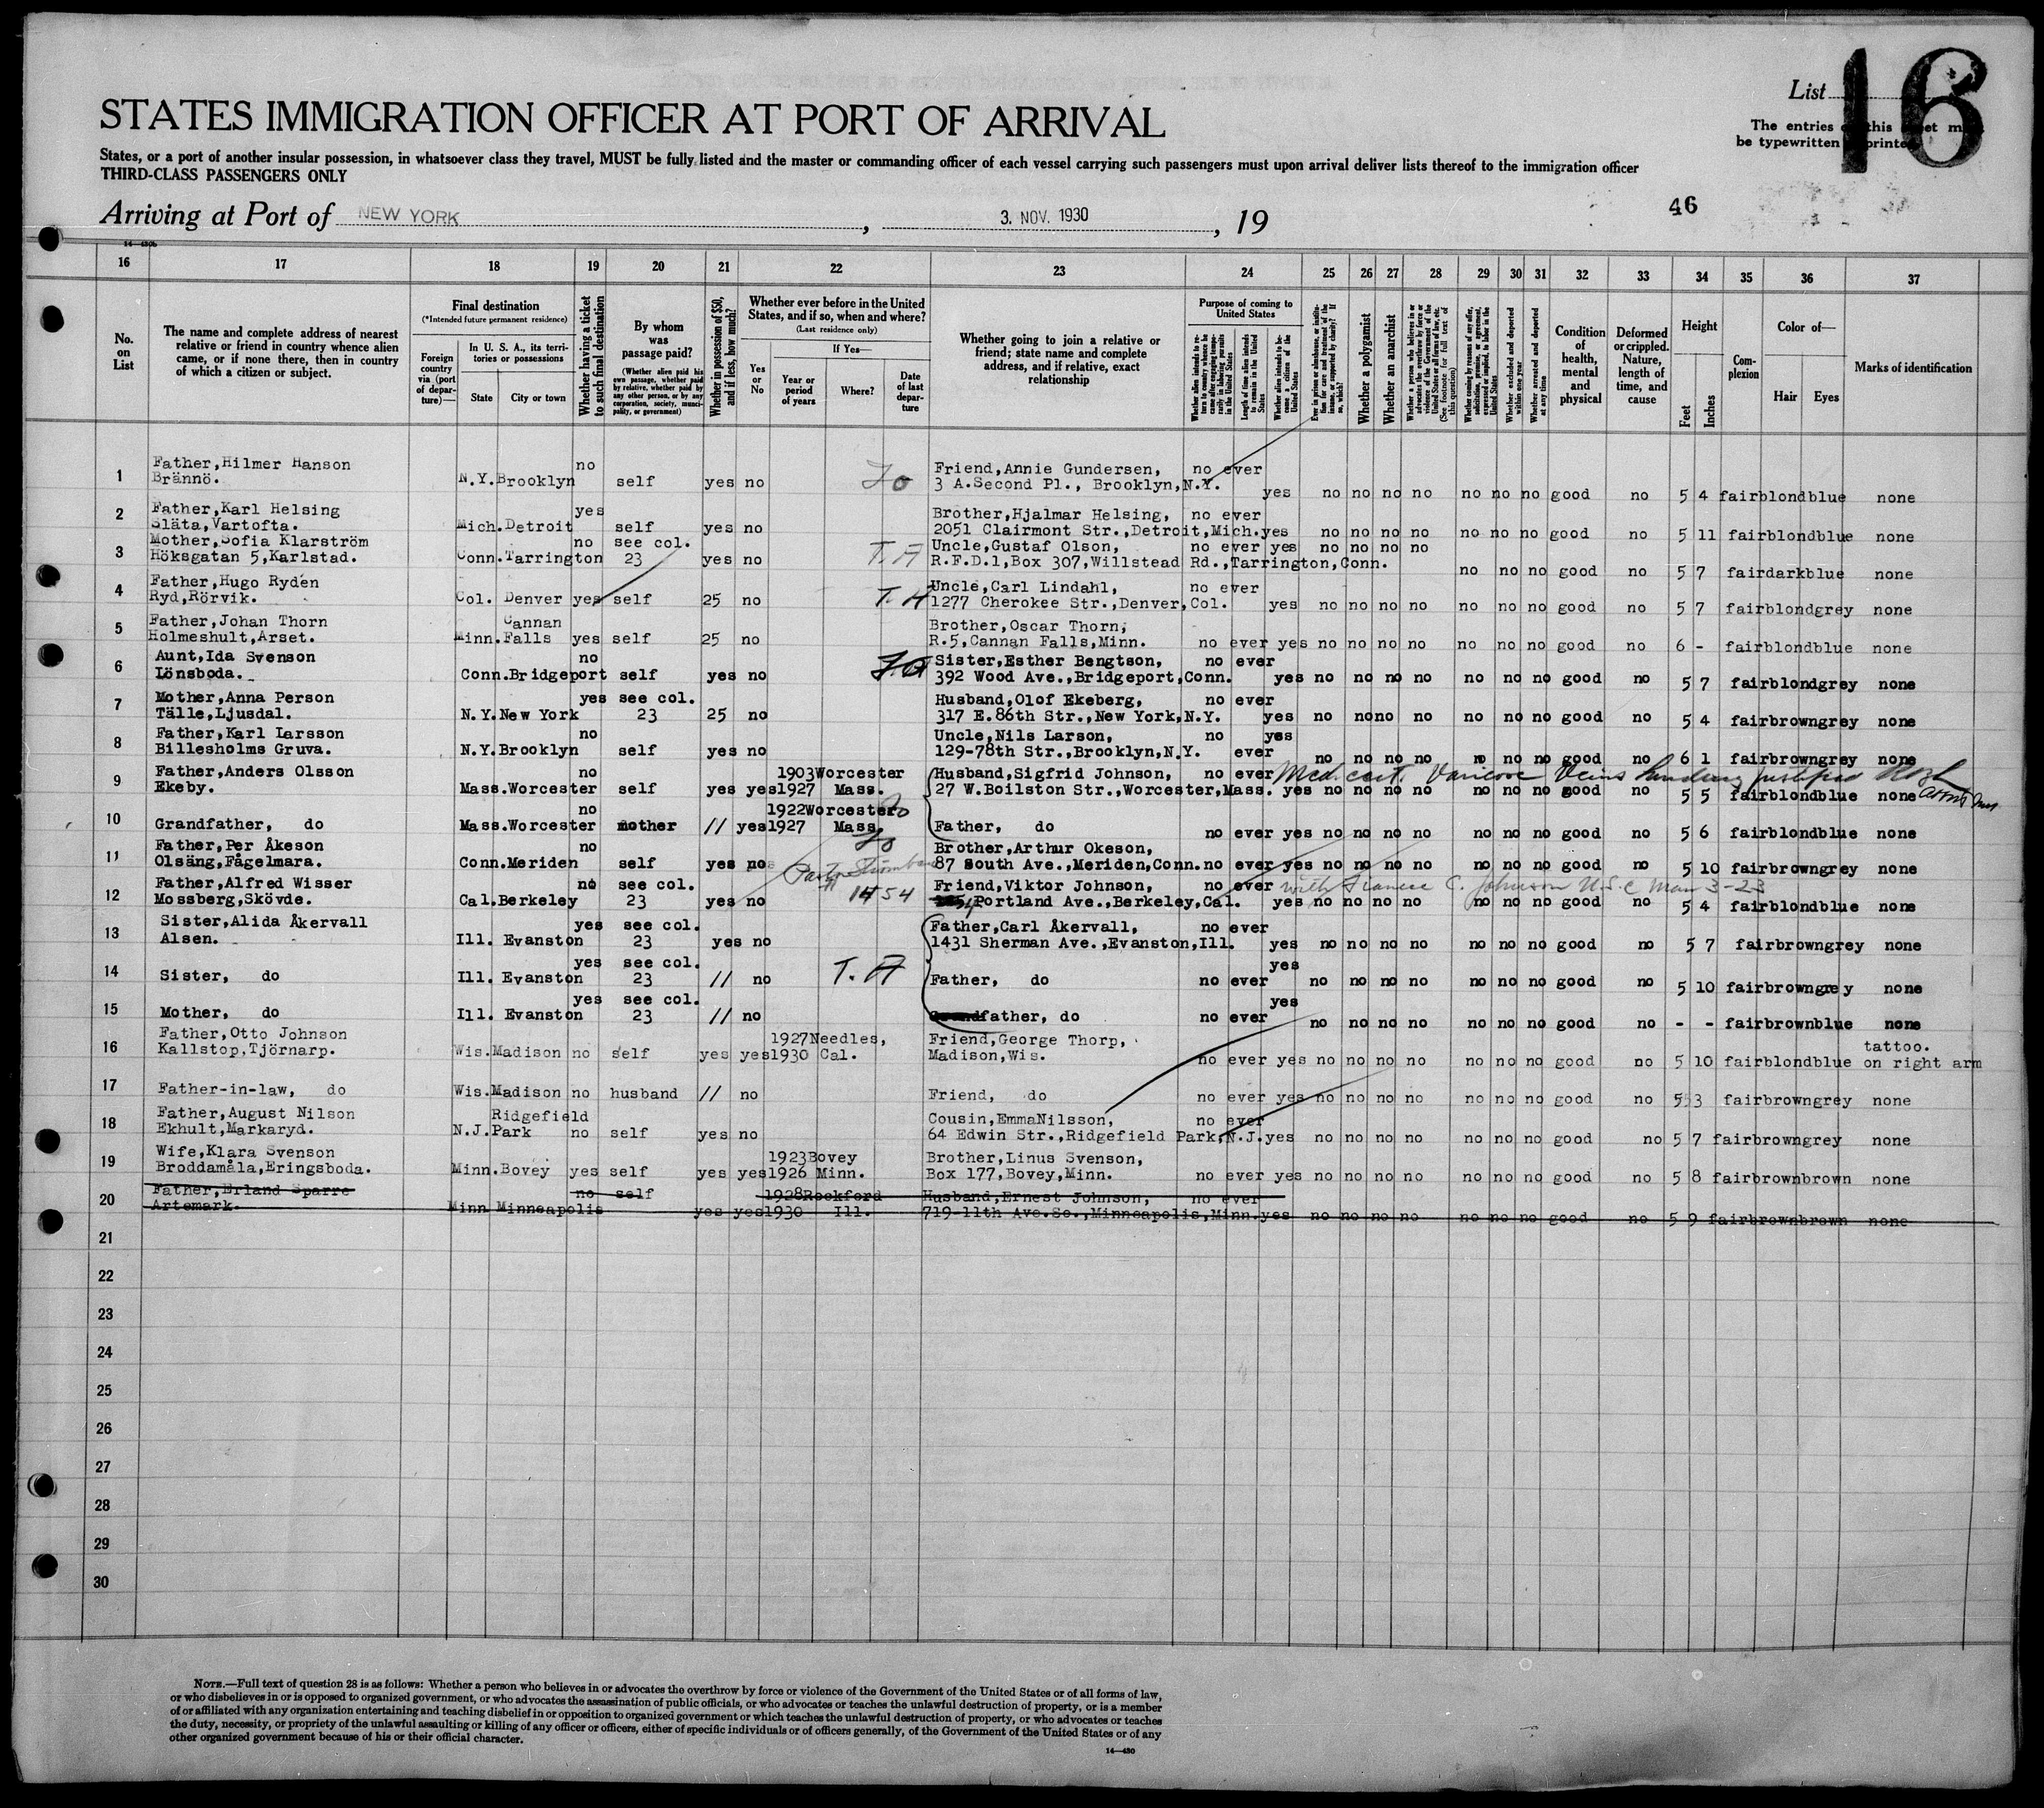 List 16
STATES IMMIGRATION OFFICER AT PORT OF ARRIVAL
The entries this must
be typewritten printed
States, or a port of another insular possession, in whatsoever class they travel, MUST be fully listed and the master or commanding officer of each vessel carrying such passengers must upon arrival deliver lists thereof to the immigration officer
THIRD-CLASS PASSENGERS ONLY
46
Arriving at Port of NEW YORK, 3. NOV. 1930, 19
16 17 18 19 20 21 22 23 24 25 26 27 28 29 30 31 32 33 34 35 36 37
No. on List
The name and complete address of nearest relative or friend in country whence alien came, or if none there, then in country of which a citizen or subject.
Final destination
(*Intended future permanent residence)
Foreign country via (port of departure)—
In U. S. A., its territories or possessions
State City or town
Whether having a ticket to such final destination
By whom was passage paid?
(Whether alien paid his own passage, whether paid by relative, whether paid by any other person, or by any corporation, society, municipality, or government)
Whether in possession of $50, and if less, how much?
Whether ever before in the United States, and if so, when and where?
(Last residence only)
Yes or No
If Yes—
Year or period of years
Where?
Date of last departure
Whether going to join a relative or friend; state name and complete address, and if relative, exact relationship
Purpose of coming to United States
Whether alien intends to return to country whence he came after engaging temporarily in laboring pursuits in the United States
Length of time alien intends to remain in the United States
Whether alien intends to become a citizen of the United States
Ever in prison or almshouse, or institution for care and treatment of the insane, or supported by charity? If so, which?
Whether a polygamist
Whether an anarchist
Whether a person who believes in or advocates the overthrow by force or violence of the Government of the United States or all forms of law, etc. (See footnote for full text of this question)
Whether coming by reasons of any offer, solicitation, promise, or agreement, expressed or implied, to labor in the United States
Whether excluded and deported within one year
Whether arrested and deported at any time
Condition of health, mental and physical
Deformed or crippled. Nature, length of time, and cause
Height
Feet Inches
Complexion
Color of—
Hair Eyes
Marks of identification
1 Father,Hilmer Hanson no Friend,Annie Gundersen, no ever
Brännö. N.Y.Brooklyn self yes no 3 A.Second Pl., Brooklyn,N.Y. yes no no no no no no no good no 5 4 fairblondblue none
2 Father,Karl Helsing yes Brother,Hjalmar Helsing, no ever
Släta,Vartofta. Mich.Detroit self yes no 2051 Clairmont Str.,Detroit,Mich.yes no no no no no no no good no 5 11 fairblondblue none
3 Mother,Sofia Klarström no see col. T.A Uncle,Gustaf Olson, no ever yes no no no no
Höksgatan 5,Karlstad. Conn.Tarrington 23 yes no R.F.D.1,Box 307,Willstead Rd.,Tarrington,Conn. no no no good no 5 7 fairdarkblue none
4 Father,Hugo Ryden T.A Uncle,Carl Lindahl, no ever
Ryd,Rörvik. Col. Denver yes self 25 no 1277 Cherokee Str.,Denver,Col. yes no no no no no no no good no 5 7 fairblondgrey none
5 Father,Johan Thorn Cannan Brother,Oscar Thorn,
Holmeshult,Arset. Minn.Falls yes self 25 no R.5,Cannan Falls,Minn. no ever yes no no no no no no no good no 6 - fairblondblue none
6 Aunt,Ida Svenson no Sister,Esther Bengtson, no ever
Lönsboda. Conn.Bridgeport self yes no 392 Wood Ave.,Bridgeport,Conn. yes no no no no no no no good no 5 7 fairblondgrey none
7 Mother,Anna Person yes see col. Husband,Olof Ekeberg, no ever
Tälle,Ljusdal. N.Y.New York 23 25 no 317 E.86th Str.,New York,N.Y. yes no no no no no no no good no 5 4 fairbrowngrey none
8 Father,Karl Larsson no Uncle,Nils Larson, no yes
Billesholms Gruva. N.Y.Brooklyn self yes no 129-78th Str.,Brooklyn,N.Y. ever no no no no no no no good no 6 1 fairbrowngrey none
9 Father,Anders Olsson no 1903Worcester Husband,Sigfrid Johnson, no ever Med. cert. Varicose Veins landing justified
Ekeby. Mass.Worcester self yes yes1927 Mass. 27 W.Boilston Str.,Worcester,Mass. yes no no no no no no no good no 5 5 fairblondblue none
10 no 1922Worcester
Grandfather, do Mass.Worcester mother // yes1927 Mass. Father, do no ever yes no no no no no no no good no 5 6 fairblondblue none
11 Father,Per Åkeson no Brother,Arthur Okeson,
Olsäng,Fågelmara. Conn.Meriden self yes no 87 South Ave.,Meriden,Conn.no ever yes no no no no no no no good no 5 10 fairbrowngrey none
12 Father,Alfred Wisser no see col. 1454 Friend,Viktor Johnson, no ever with fiance C. Johnson U.S.C. 3-23
Mossberg,Skövde. Cal.Berkeley 23 yes no Portland Ave.,Berkeley,Cal. yes no no no no no no no good no 5 4 fairblondblue none
13 Sister,Alida Åkervall yes see col. Father,Carl Åkervall, no ever
Alsen. Ill. Evanston 23 yes no 1431 Sherman Ave.,Evanston,Ill. yes no no no no no no no good no 5 7 fairbrowngrey none
14 yes see col. T.A yes
Sister, do Ill. Evanston 23 // no Father, do no ever no no no no no no no good no 5 10 fairbrowngrey none
15 yes see col. yes
Mother, do Ill. Evanston 23 // no Grandfather, do no ever no no no no no no no good no - - fairbrownblue none
16 Father,Otto Johnson 1927Needles, Friend,George Thorp, tattoo.
Kallstop,Tjörnarp. Wis.Madison no self yes yes1930 Cal. Madison,Wis. no ever yes no no no no no no no good no 5 10 fairblondblue on right arm
17 Father-in-law, do Wis.Madison no husband // no Friend, do no ever yes no no no no no no no good no 5 3 fairbrowngrey none
18 Father,August Nilson Ridgefield Cousin,EmmaNilsson, no ever
Ekhult,Markaryd. N.J.Park no self yes no 64 Edwin Str.,Ridgefield Park,N.J.yes no no no no no no no good no 5 7 fairbrowngrey none
19 Wife,Klara Svenson 1923Bovey Brother,Linus Svenson,
Broddamåla,Eringsboda. Minn.Bovey yes self yes yes1926 Minn. Box 177,Bovey,Minn. no ever yes no no no no no no no good no 5 8 fairbrownbrown none
20 Father,Erland Sparre no self 1928Rockford Husband,Ernest Johnson, no ever
Artemark. Minn Minneapolis yes yes1930 Ill. 719-11th Ave.So.,Minneapolis,Minn.yes no no no no no no no good no 5 9 fairbrownbrown none
21
22
23
24
25
26
27
28
29
30
NOTE.—Full text of question 28 is as follows: Whether a person who believes in or advocates the overthrow by force or violence of the Government of the United States or of all forms of law,
or who disbelieves in or is opposed to organized government, or who advocates the assassination of public officials, or who advocates or teaches the unlawful destruction of property, or is a member
of or affiliated with any organization entertaining and teaching disbelief in or opposition to organized government or which teaches the unlawful destruction of property, or who advocates or teaches
the duty, necessity, or propriety of the unlawful assaulting or killing of any officer or officers, either of specific individuals or of officers generally, of the Government of the United States or of any
other organized government because of his or their official character.
14—430